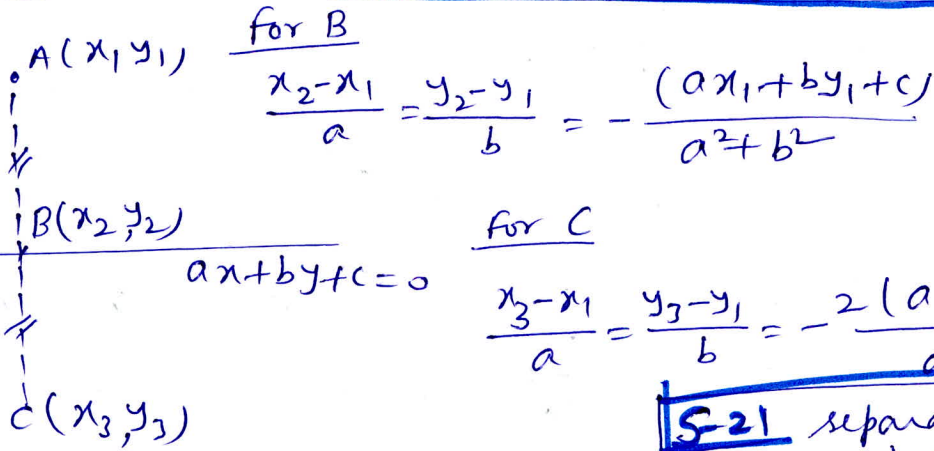 A(x₁ y₁)
for B
(x₂-x₁)/a = (y₂-y₁)/b = -(ax₁+by₁+c)/(a²+b²)
B(x₂,y₂)
ax+by+c=0
for C
(x₃-x₁)/a = (y₃-y₁)/b = -2(a
C(x₃,y₃)
S-21